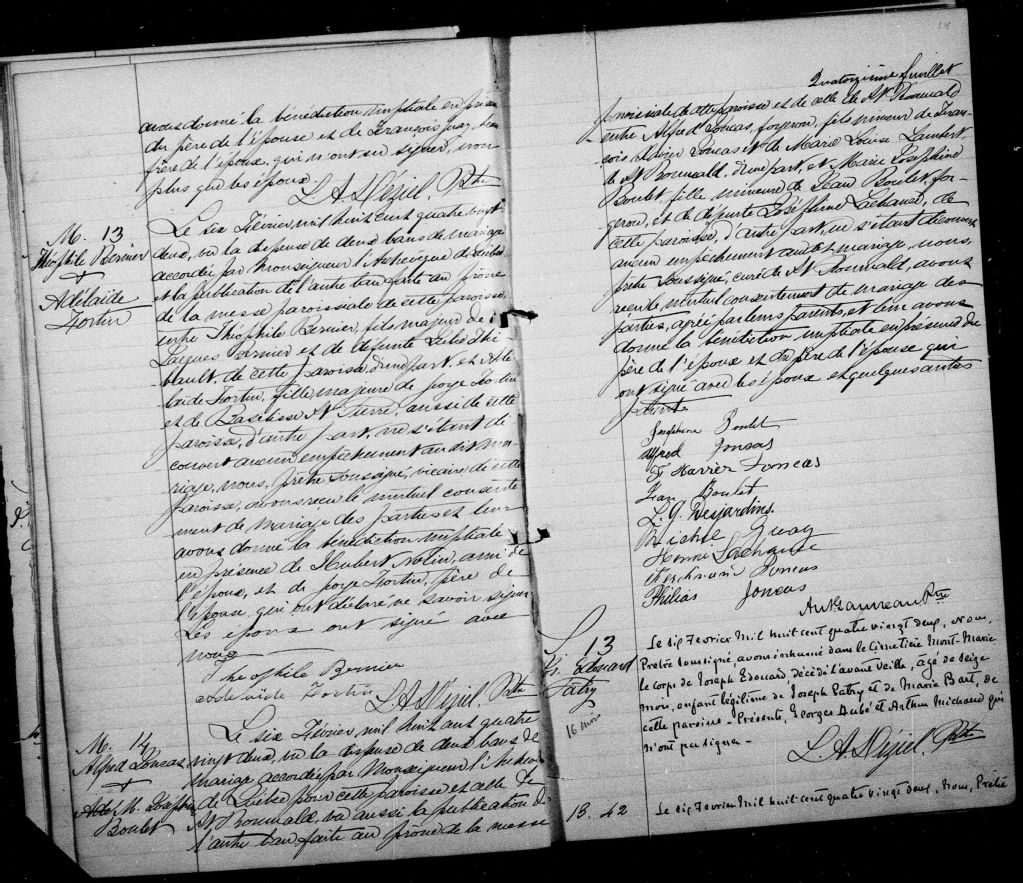 avons donné la bénédiction nuptiale en présence
du père de l'épouse et de François
frère de l'époux, qui n'ont su signer, non
plus que les époux.
L. A. Déziel. Ptre
M. 13
Théophile Bernier
+
Adélaide
Fortin
Le six Février mil huit cent quatre vingt
deux, vu la dispense de deux bans de mariage
accordée par Monseigneur l'Archevêque de Québec
et la publication de l'autre ban faite au prône
de la messe paroissiale de cette paroisse,
entre Théophile Bernier, fils majeur de
Jacques Bernier et de défunte Lebis Thi-
bault, de cette paroisse, d'une part, et Adé-
laide Fortin, fille majeure de Joye Fortin
et de Baselisse St Pierre, aussi de cette
paroisse, d'autre part, ne s'étant dé-
couvert aucun empêchement au dit ma-
riage, nous, Prêtre soussigné, vicaire de cette
paroisse, avons reçu le mutuel consente-
ment de mariage des parties et leur
avons donné la bénédiction nuptiale
en présence de Hubert Nolin, ami de
l'époux, et de Joye Fortin, père de
l'épouse, qui ont déclaré ne savoir signer
Les époux ont signé avec
nous
Théophile Bernier
Fortin
L. A. Déziel. Ptre
M. 14
Alfred Joncas
+
Joséphine
Boulet
Le six Février, mil huit cent quatre
vingt deux, vu la dispense de deux bans de
mariage accordée par Monseigneur l'Archev.
de Québec pour cette paroisse et celle de
St Romuald, vu aussi la publication de
l'autre ban faite au prône de la messe
14
Quatorzième feuillet
paroissiale de cette paroisse et de celle de St Romuald
entre Alfred Joncas, forgeron, fils mineur de Fran-
çois Xavier Joncas et de Marie Louise Lambert
de St Romuald, d'une part, et Marie Joséphine
Boulet, fille mineure de Jean Boulet, for-
geron, et de défunte Joséphine Lachance, de
cette paroisse, d'autre part, ne s'étant découvert
aucun empêchement au dit mariage, nous,
prêtre soussigné, curé de St Romuald, avons
reçu le mutuel consentement de mariage des
parties, agréé par leurs parents, et leur avons
donné la bénédiction nuptiale en présence du
père de l'époux et du père de l'épouse qui
ont signé avec les époux et quelques autres
Joséphine Boulet
Alfred Joncas
F Xavier Joncas
Jean Boulet
L. G. Desjardins
Guay
Lachance
Ferdinand Joncas
Philias Joncas
Ptre
S. 13
Js. Edouard
Patry
16 mois
Le six Fevrier mil huit cent quatre vingt deux, nous,
Prêtre soussigné, avons inhumé dans le Cimetière Mont-Marie
le corps de Joseph Edouard, décédé l'avant veille, âgé de seize
mois, enfant légitime de Joseph Patry et de Marie Bart, de
cette paroisse. Présents, Georges Aubé et Arthur Michaud qui
n'ont pu signer.
L. A. Déziel. Ptre
B. 42
Le six Fevrier mil huit cent quatre vingt deux, nous, Prêtre